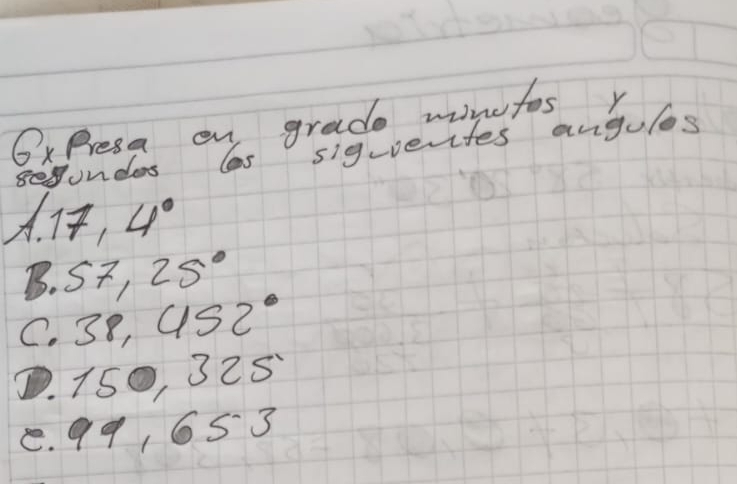 Expresa en grado minutos y
segundos los siguientes angulos
A. 17, 4°
B. 57, 25°
C. 38, 452°
D. 150, 325
e. 99, 653